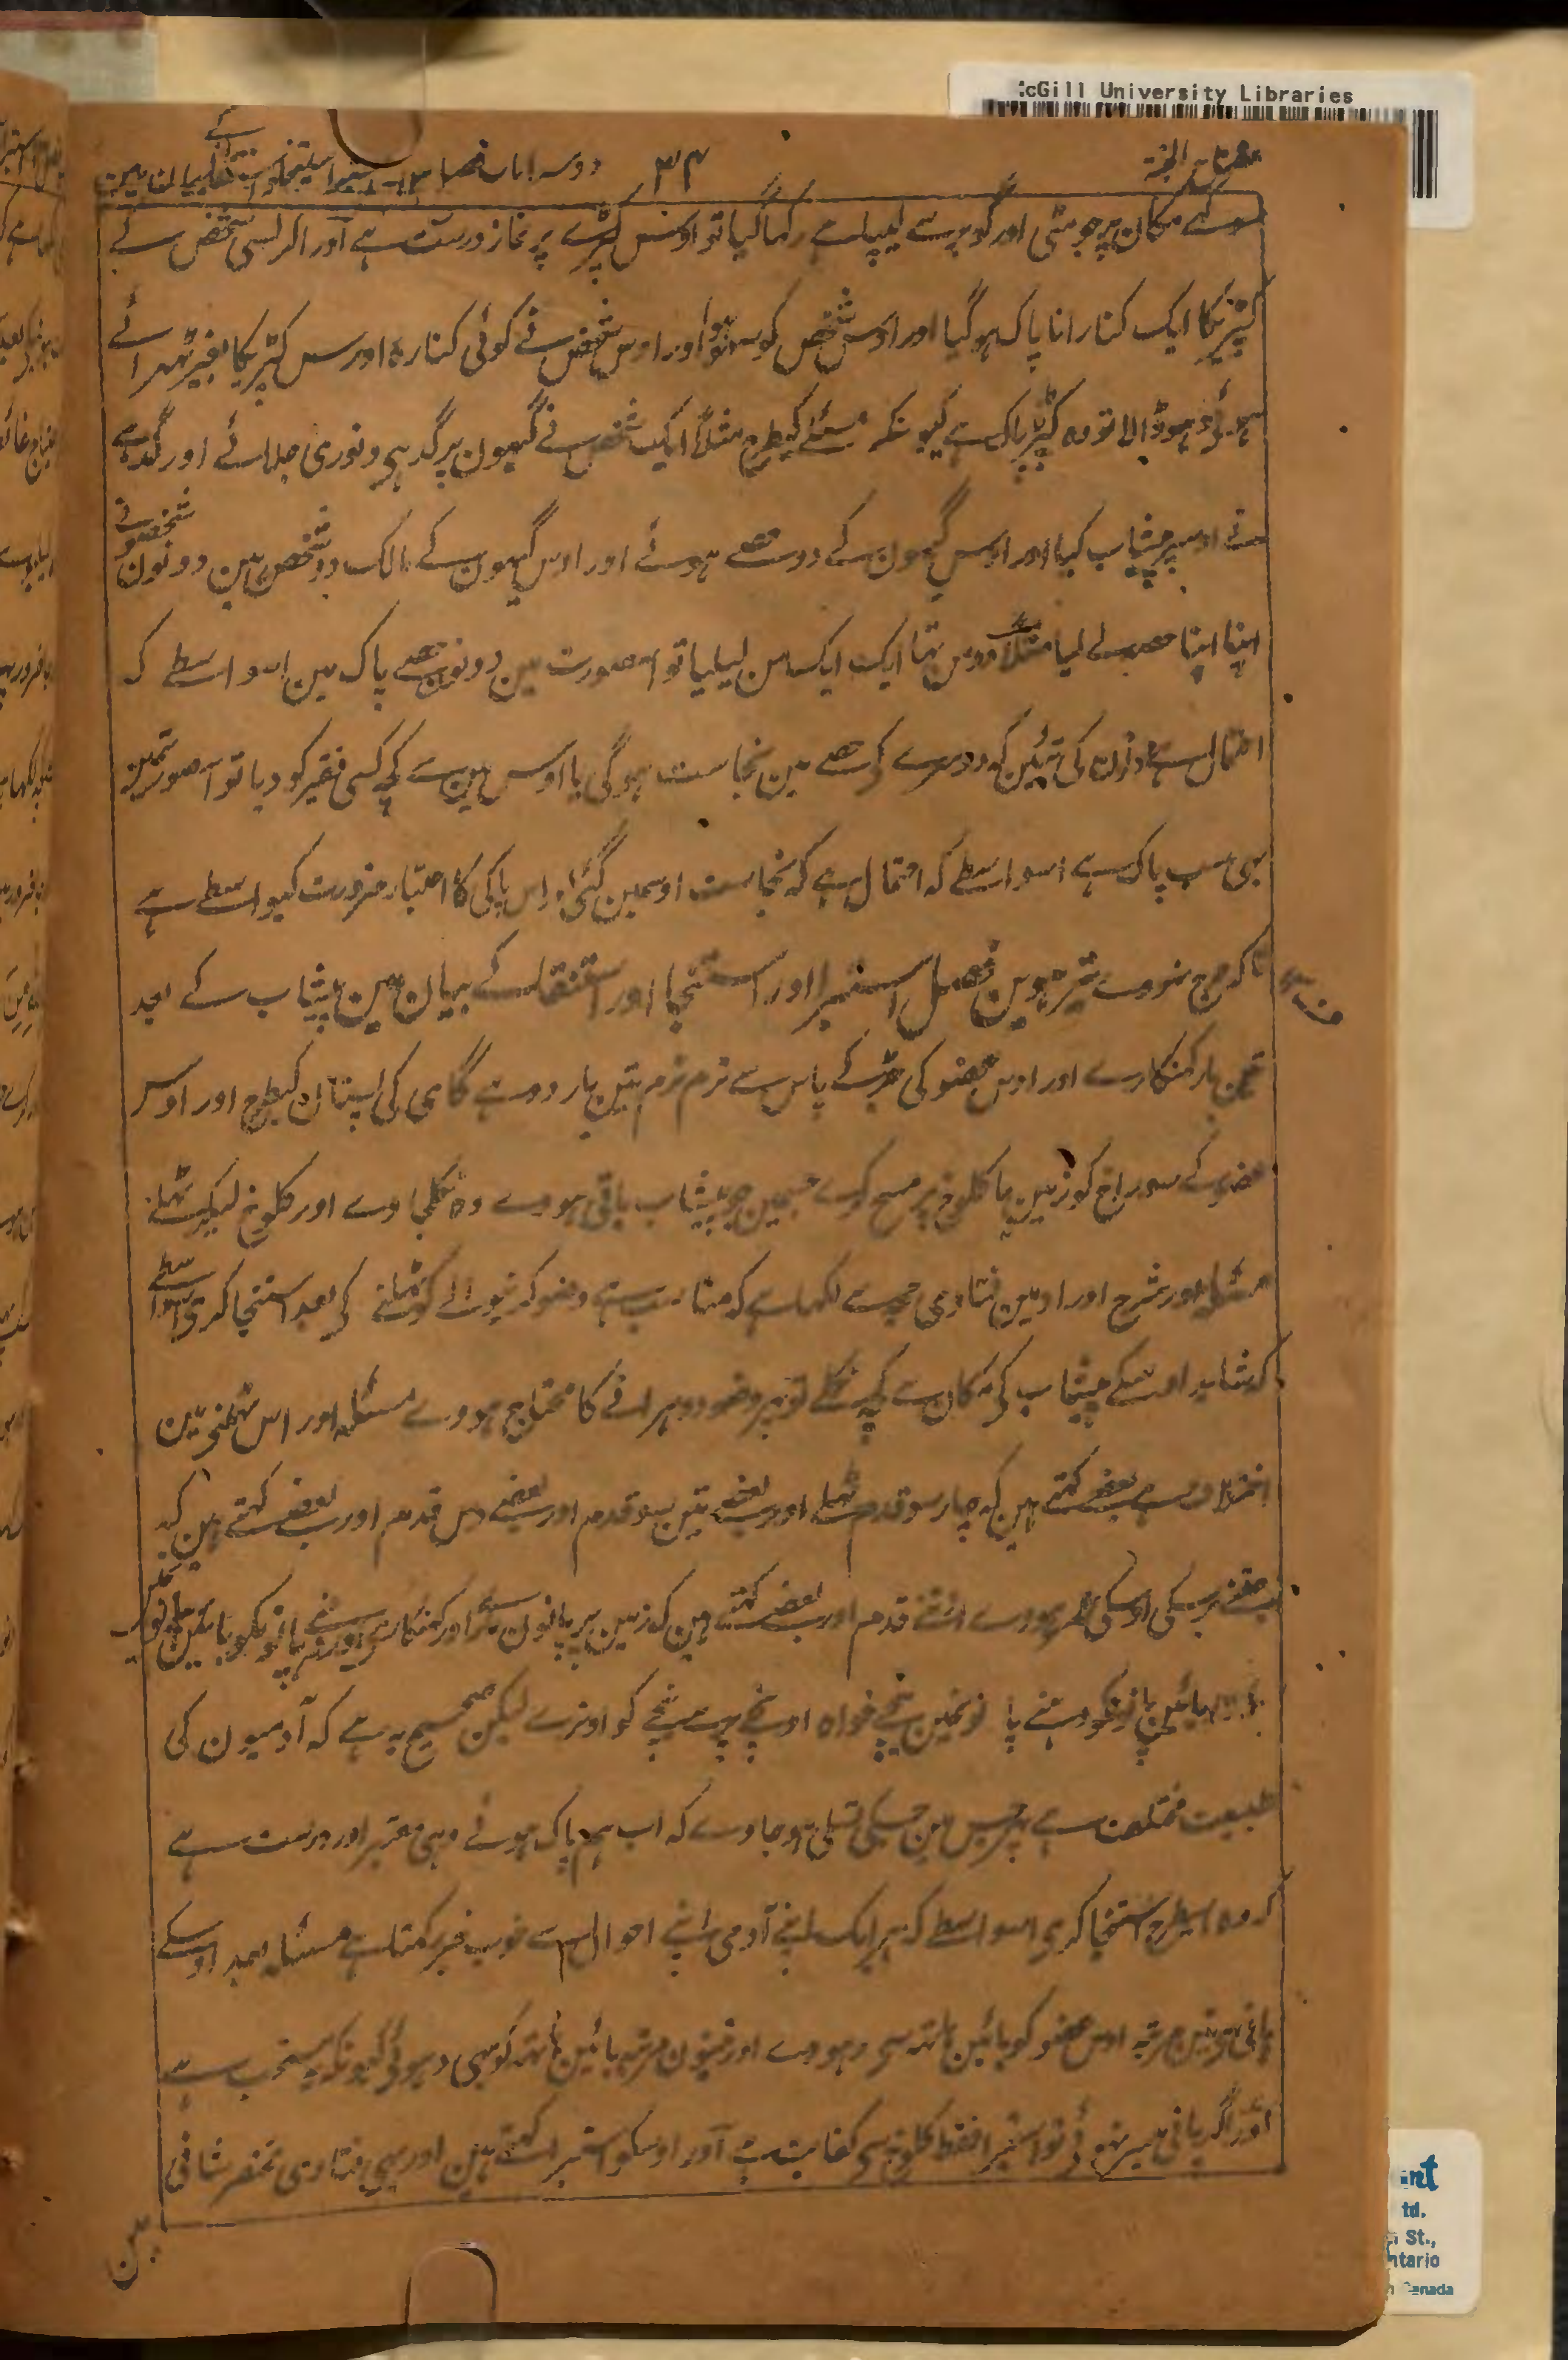 cGill University Libraries
مفتاح الجنة ۳۴ دوسرا باب فصل ۱۳ استبرا استنجا کے بیان مین
سوکھے مکان پر جو مٹی اور گوبر سے لیپا ہے رکھا گیا تو اوس کپڑے پر نماز درست ہے اور اگر کسی شخص کے
کپڑیکا ایک کنارا ناپاک ہو گیا اور اوس شخص کو سہو ہوا اور اوس شخص نے کوئی کنارہ اوس کپڑیکا بغیر ٹھہرائے
ہوئے دہو ڈالا تو وہ کپڑا پاک ہے کیونکہ مسئلے کیطرح مثلاً ایک شخص نے گیہون پر گدہی دنوری چلائے اور گدہے
نے اوسپر پیشاب کیا اور اوس گیہون کے دو حصے ہوئے اور اوس گیہون کے مالک دو شخص ہین دونون شخصونے
اپنا اپنا حصہ لے لیا مثلاً دو من تہا ایک ایک من لیلیا تو اس صورت مین دونون حصے پاک ہین اسواسطے کہ
احتمال ہے دونون کی تئین کہ دوسرے کے حصے مین نجاست ہوگی یا اوس مین سے کچھ کسی فقیر کو دیا تو اس صورتمین
بہی سب پاک ہے اسواسطے کہ احتمال ہے کہ نجاست اوسمین گئی اور اس پاکی کا اعتبار ضرورت کیواسطے ہے
تاکہ حرج نہووے تیرہوین فصل استبرا اور استنجا اور استنقا کے بیان مین پیشاب کے بعد
تین بار کھنکارے اور اوس عضو کی جڑ کے پاس سے نرم نرم تین بار دوہے گای کی پستان کیطرح اور اوس
عضو کے سوراخ کو زمین یا کلوخ پر مسح کرے جسمین جو پیشاب باقی ہووے وہ نکلجاوے اور کلوخ لیکر ٹہلے
مسئلہ اور شرح اوراد مین فتاوی حجہ سے لکھا ہے کہ مناسب ہے وضو کرنیوالے کو ٹہلنے کی بعد استنجا کری اسواسطے
کہ شاید اوسکے پیشاب کی مکان سے کچھ نکلے تو پہر وضو دوہرانے کا محتاج ہووے مسئلہ اور اس ٹہلنی مین
اختلاف ہے بعضے کہتے ہین کہ چار سو قدم ٹہلے اور بعضے تین سو قدم اور بعضے دس قدم اور بعضے کہتے ہین کہ
جتنے برس کی اوسکی عمر ہووے اتنے قدم اور بعضے کہتے ہین کہ زمین پر پانون مارے اور کھنکارے اور دہنے پانوکو بائین پانو پر
بائین پانوکو دہنے پا نونمین نیچے خواہ اونچے پر سے نیچے کو اوترے لیکن صحیح یہ ہے کہ آدمیون کی
طبیعت مختلف ہے پہر جس مین جسکی تسلی ہو جاوے کہ اب ہم پاک ہوئے وہی معتبر اور درست ہے
کہ وہ اسیطرح استنجا کری اسواسطے کہ ہر ایک اپنے آدمی اپنے احوال سے خوب خبر رکہتا ہے مسئلہ بعد اوسکے
پانی سے تین مرتبہ اوس عضو کو بائین ہاتہ سی دہووے اور تینون مرتبہ بائین ہاتہ کو بہی دہووئے کیونکہ یہ مستحب ہے
اور اگر پانی میسر نہوئے تو استبرا فقط کلوخ سی کفایت ہے اور اوسکو استبرا کہتے ہین اور بہی فتاوی مختصر شافی
مین
td.
St.,
ntario
Canada